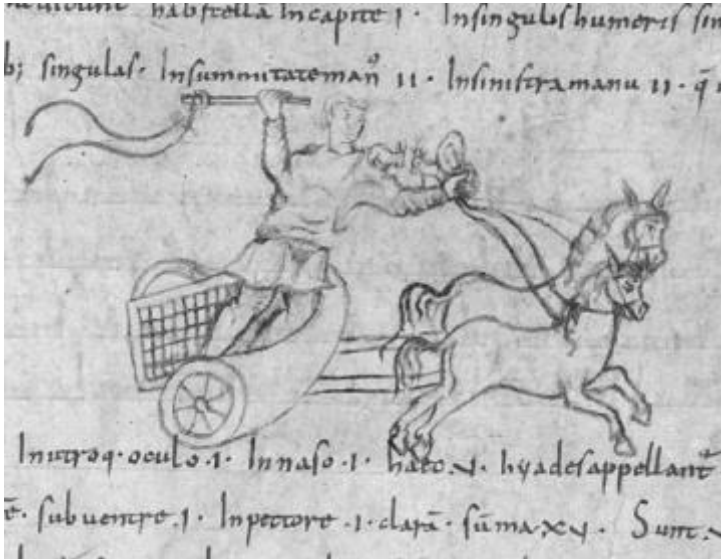 habstella Incapite I · Insingulis humeris sin
b; singulas · Insummitate man᷒ II · Insinistra manu II · q̄
Inutroq· oculo · I · Innaso · I · haec · V · hyades appellant᷒
ē · sub ventre · I · Inpectore · I · clarā · sūma · XV · Sunt · V